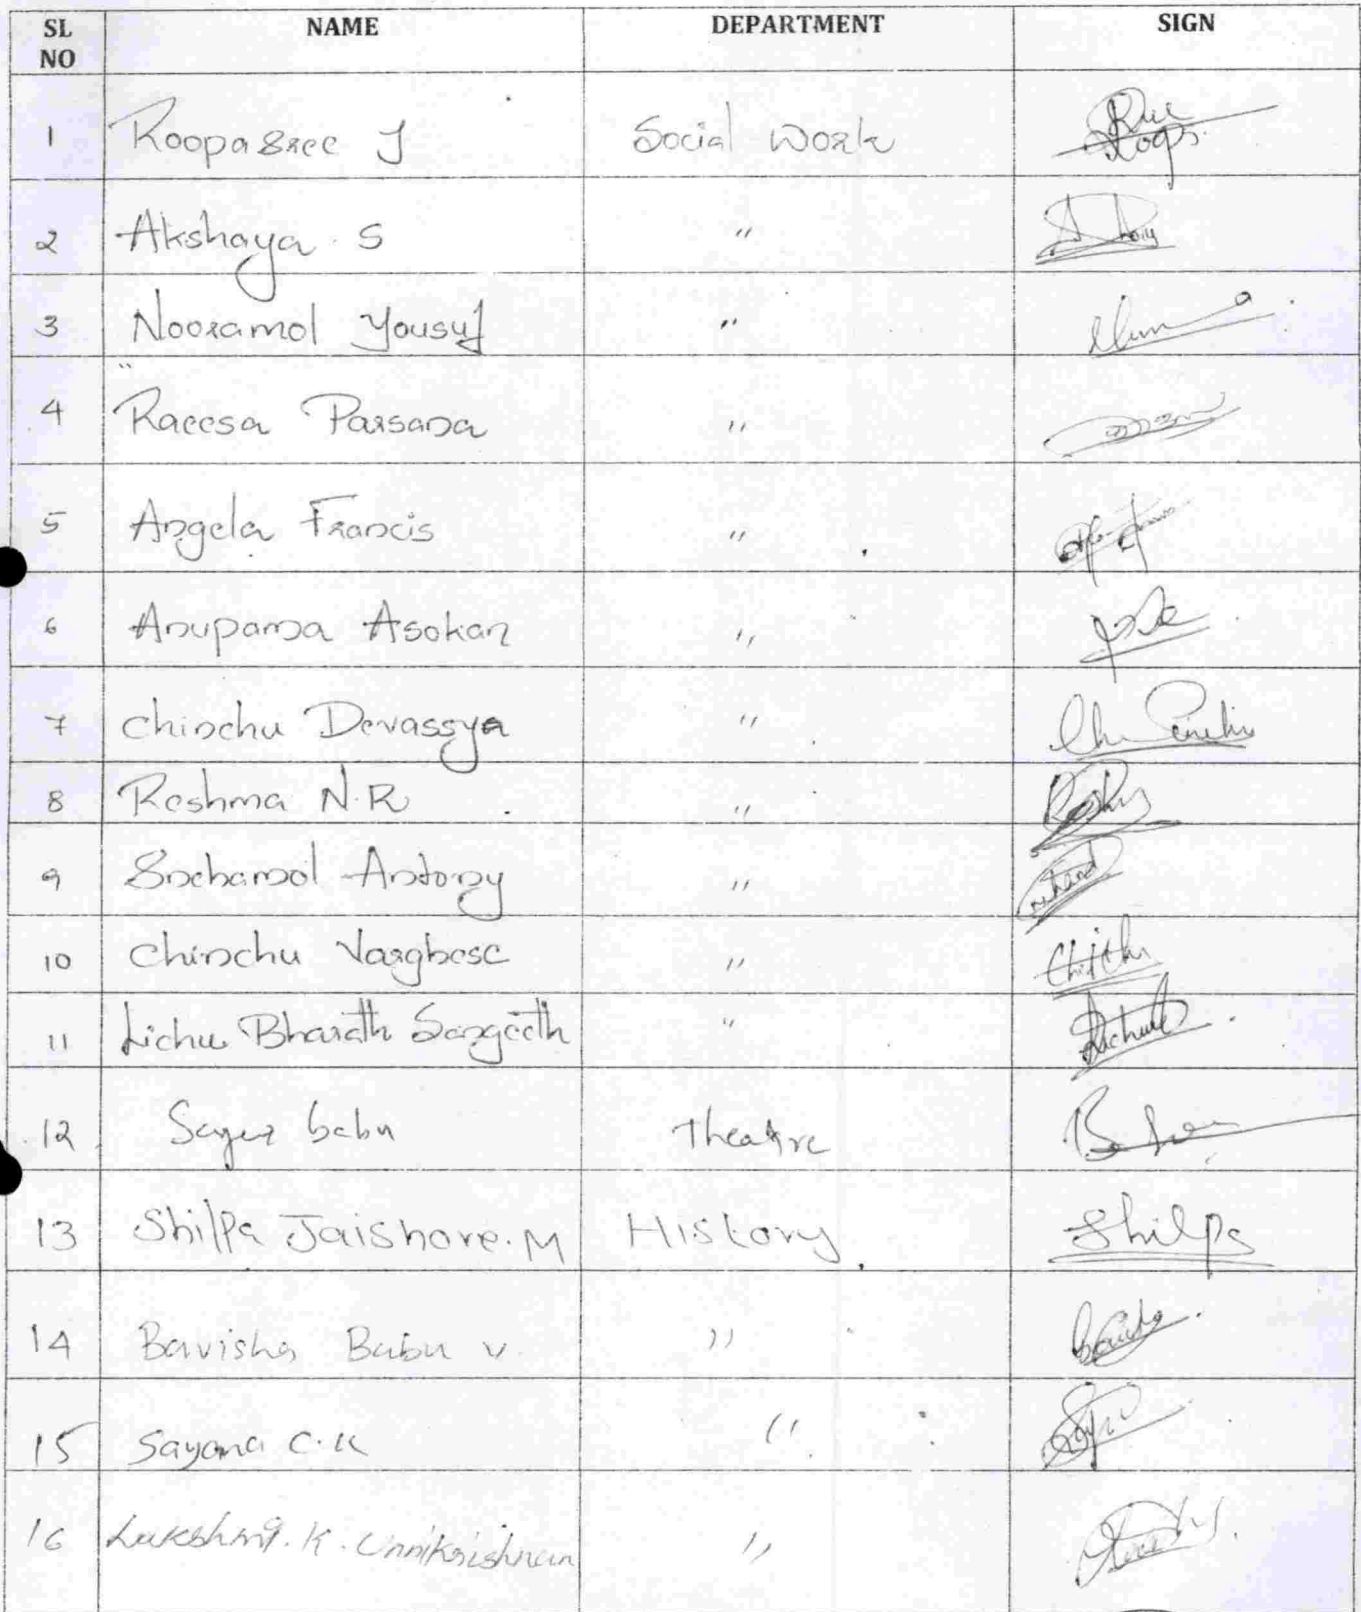 SL NO NAME DEPARTMENT SIGN
1 Roopasree J Social Work
2 Akshaya S "
3 Nooramol Yousuf "
4 Raeesa Parsana "
5 Angela Francis "
6 Anupama Asokan "
7 Chinchu Devassya "
8 Reshma N.R "
9 Snehamol Antony "
10 Chinchu Varghese "
11 Lichu Bharath Sangeeth "
12 babu Theatre
13 Shilpa Jaishore.M History Shilpa
14 Bavisha Babu v "
15 Sayana C.K "
16 Lakshmi.K.Unnikrishnan "